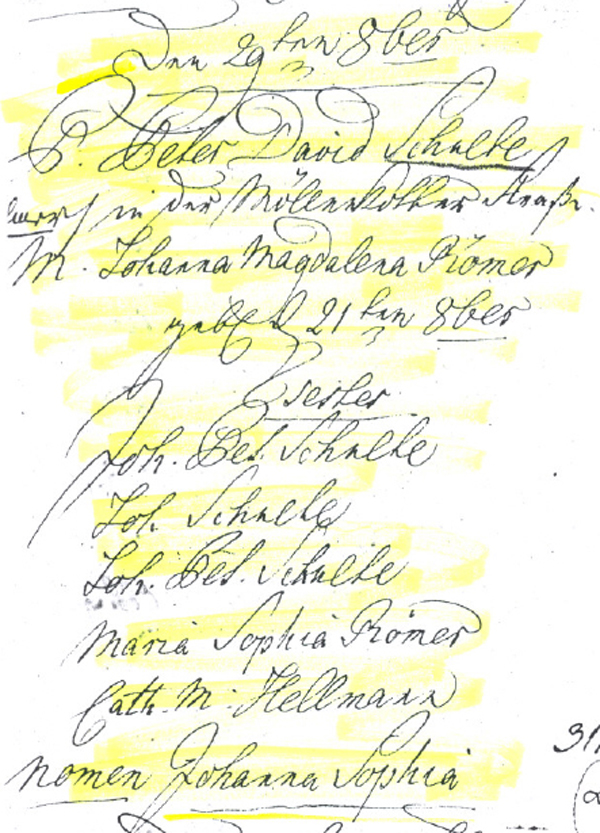 Den 29ten 8ber
P. Peter David Schulte
in der Möllenkotter Straße.
M. Johanna Magdalena Römer
geb. d 21ten 8ber
Testes
Joh. Pet. Schulte
Joh. Schulte
Joh. Pet. Schulte
Maria Sophia Römer
Cath. M. Hellmann
Nomen Johanna Sophia
31